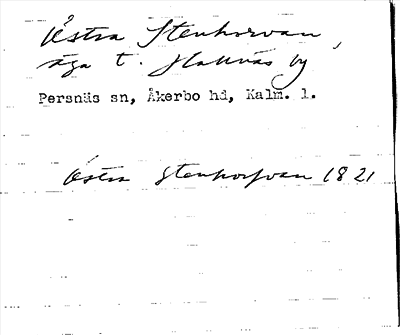 Östra Stenhorvan,
äga t. Hallnäs by
Persnäs sn, Åkerbo hd, Kalm. l.
Östra Stenhorfvan 1821